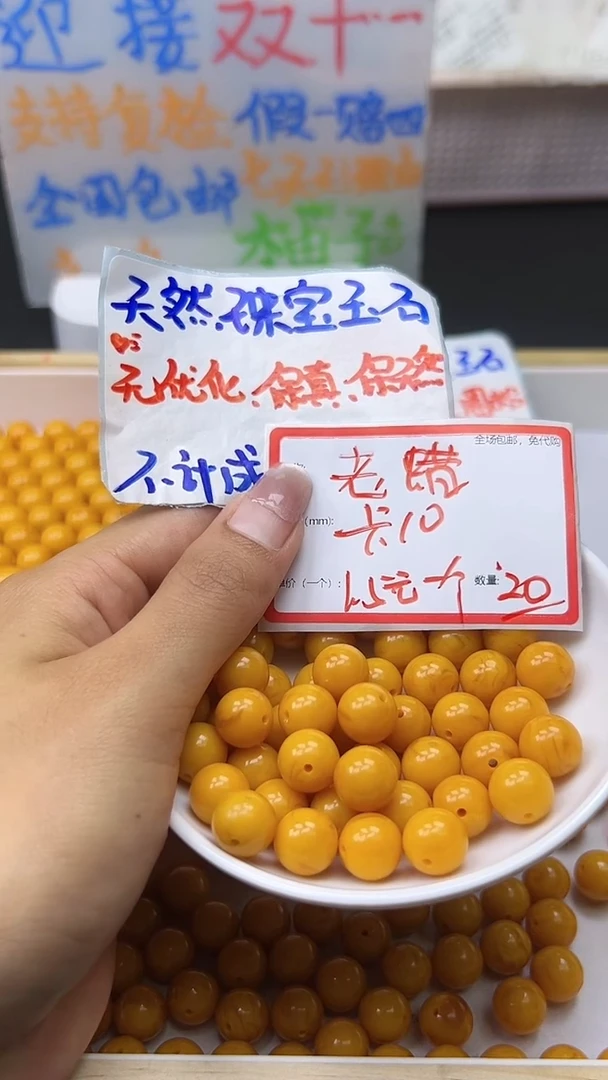 迎接双十一
支持复检 假一赔四
全国包邮 七天无理由
柚子
天然.珠宝玉石
无优化.保真.保
不计成
玉石
全场包邮，免代购
老
(mm): 卡10
价（一个）: 1.5元个 数量: 20